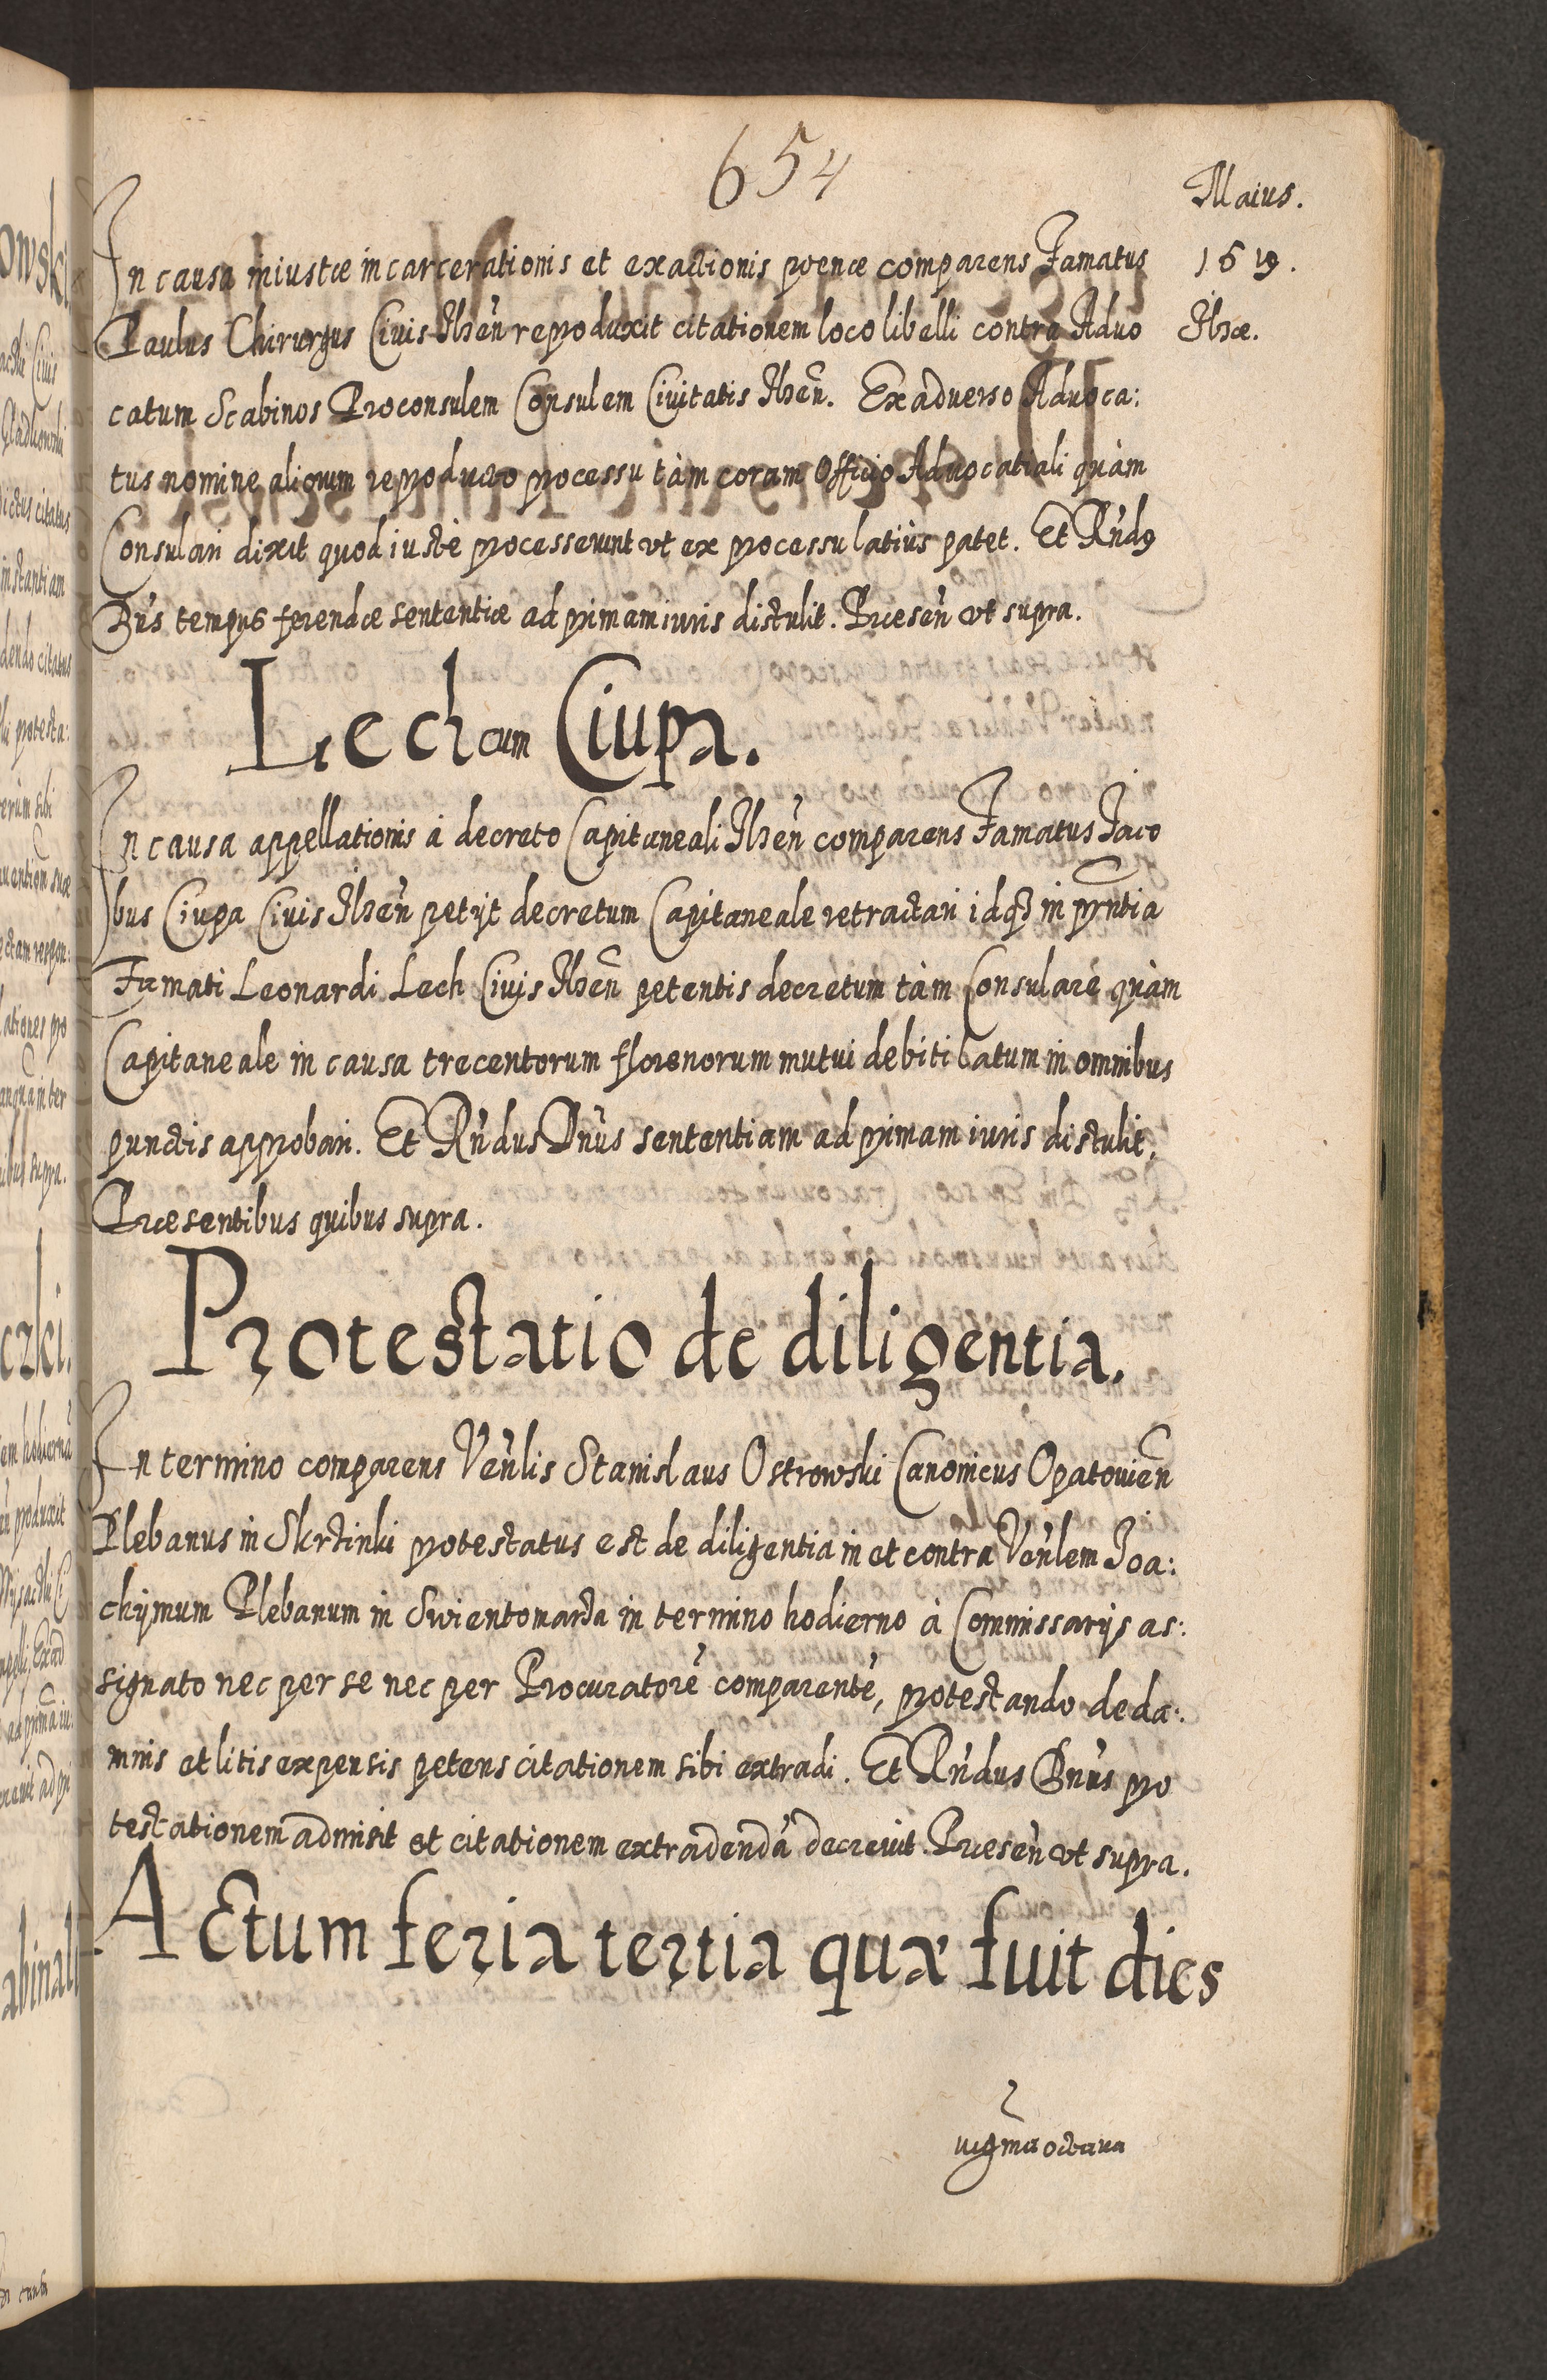 654
Maius.
1619.
Ilzæ.
In causa iniustæ incarcerationis et exactionis poenæ comparens Famatus
Paulus Chirurgus Ciuis Ilzen̄ reproduxit citationem loco libelli contra Aduo
catum Scabinos Proconsulem Consulem Ciuitatis Ilzen̄. Ex aduerso Aduoca:
tus nomine aliorum reproducto processu tàm coram Officio Aduocatiali quàm
Consulari dixit quod iustè processerunt vt ex processu latiùs patet. Et Rn̄dꝰ
Dn̄s tempus ferendæ sententiæ ad primam iuris distulit. Præsen̄ vt supra.
Lech cum Ciupa.
In causa appellationis à decreto Capitaneali Ilzen̄ comparens Famatus Iaco
bus Ciupa Ciuis Ilzen̄ petijt decretum Capitaneale retractari idqꝫ in prn̄tia
Famati Leonardi Lech Ciuis Ilzen̄ petentis decretum tàm Consulare quàm
Capitaneale in causa trecentorum florenorum mutui debiti latum in omnibus
punctis approbari. Et Rn̄dus Dn̄us sententiam ad primam iuris distulit.
Præsentibus quibus supra.
Protestatio de diligentia.
In termino comparens Ven̄lis Stanislaus Ostrowski Canonicus Opatouien̄
Plebanus in Skrzinki protestatus est de diligentia in et contra Ven̄lem Ioa:
chymum Plebanum in Swientomarza in termino hodierno à Commissarijs as:
signato nec per se nec per Procuratorē comparentē, protestando de da:
mnis et litis expensis petens citationem sibi extradi. Et Rn̄dus Dn̄us pro
testationem admisit et citationem extradendā decreuit. Præsen̄ vt supra.
Actum feria tertia quæ fuit dies
uigm̄a octaua